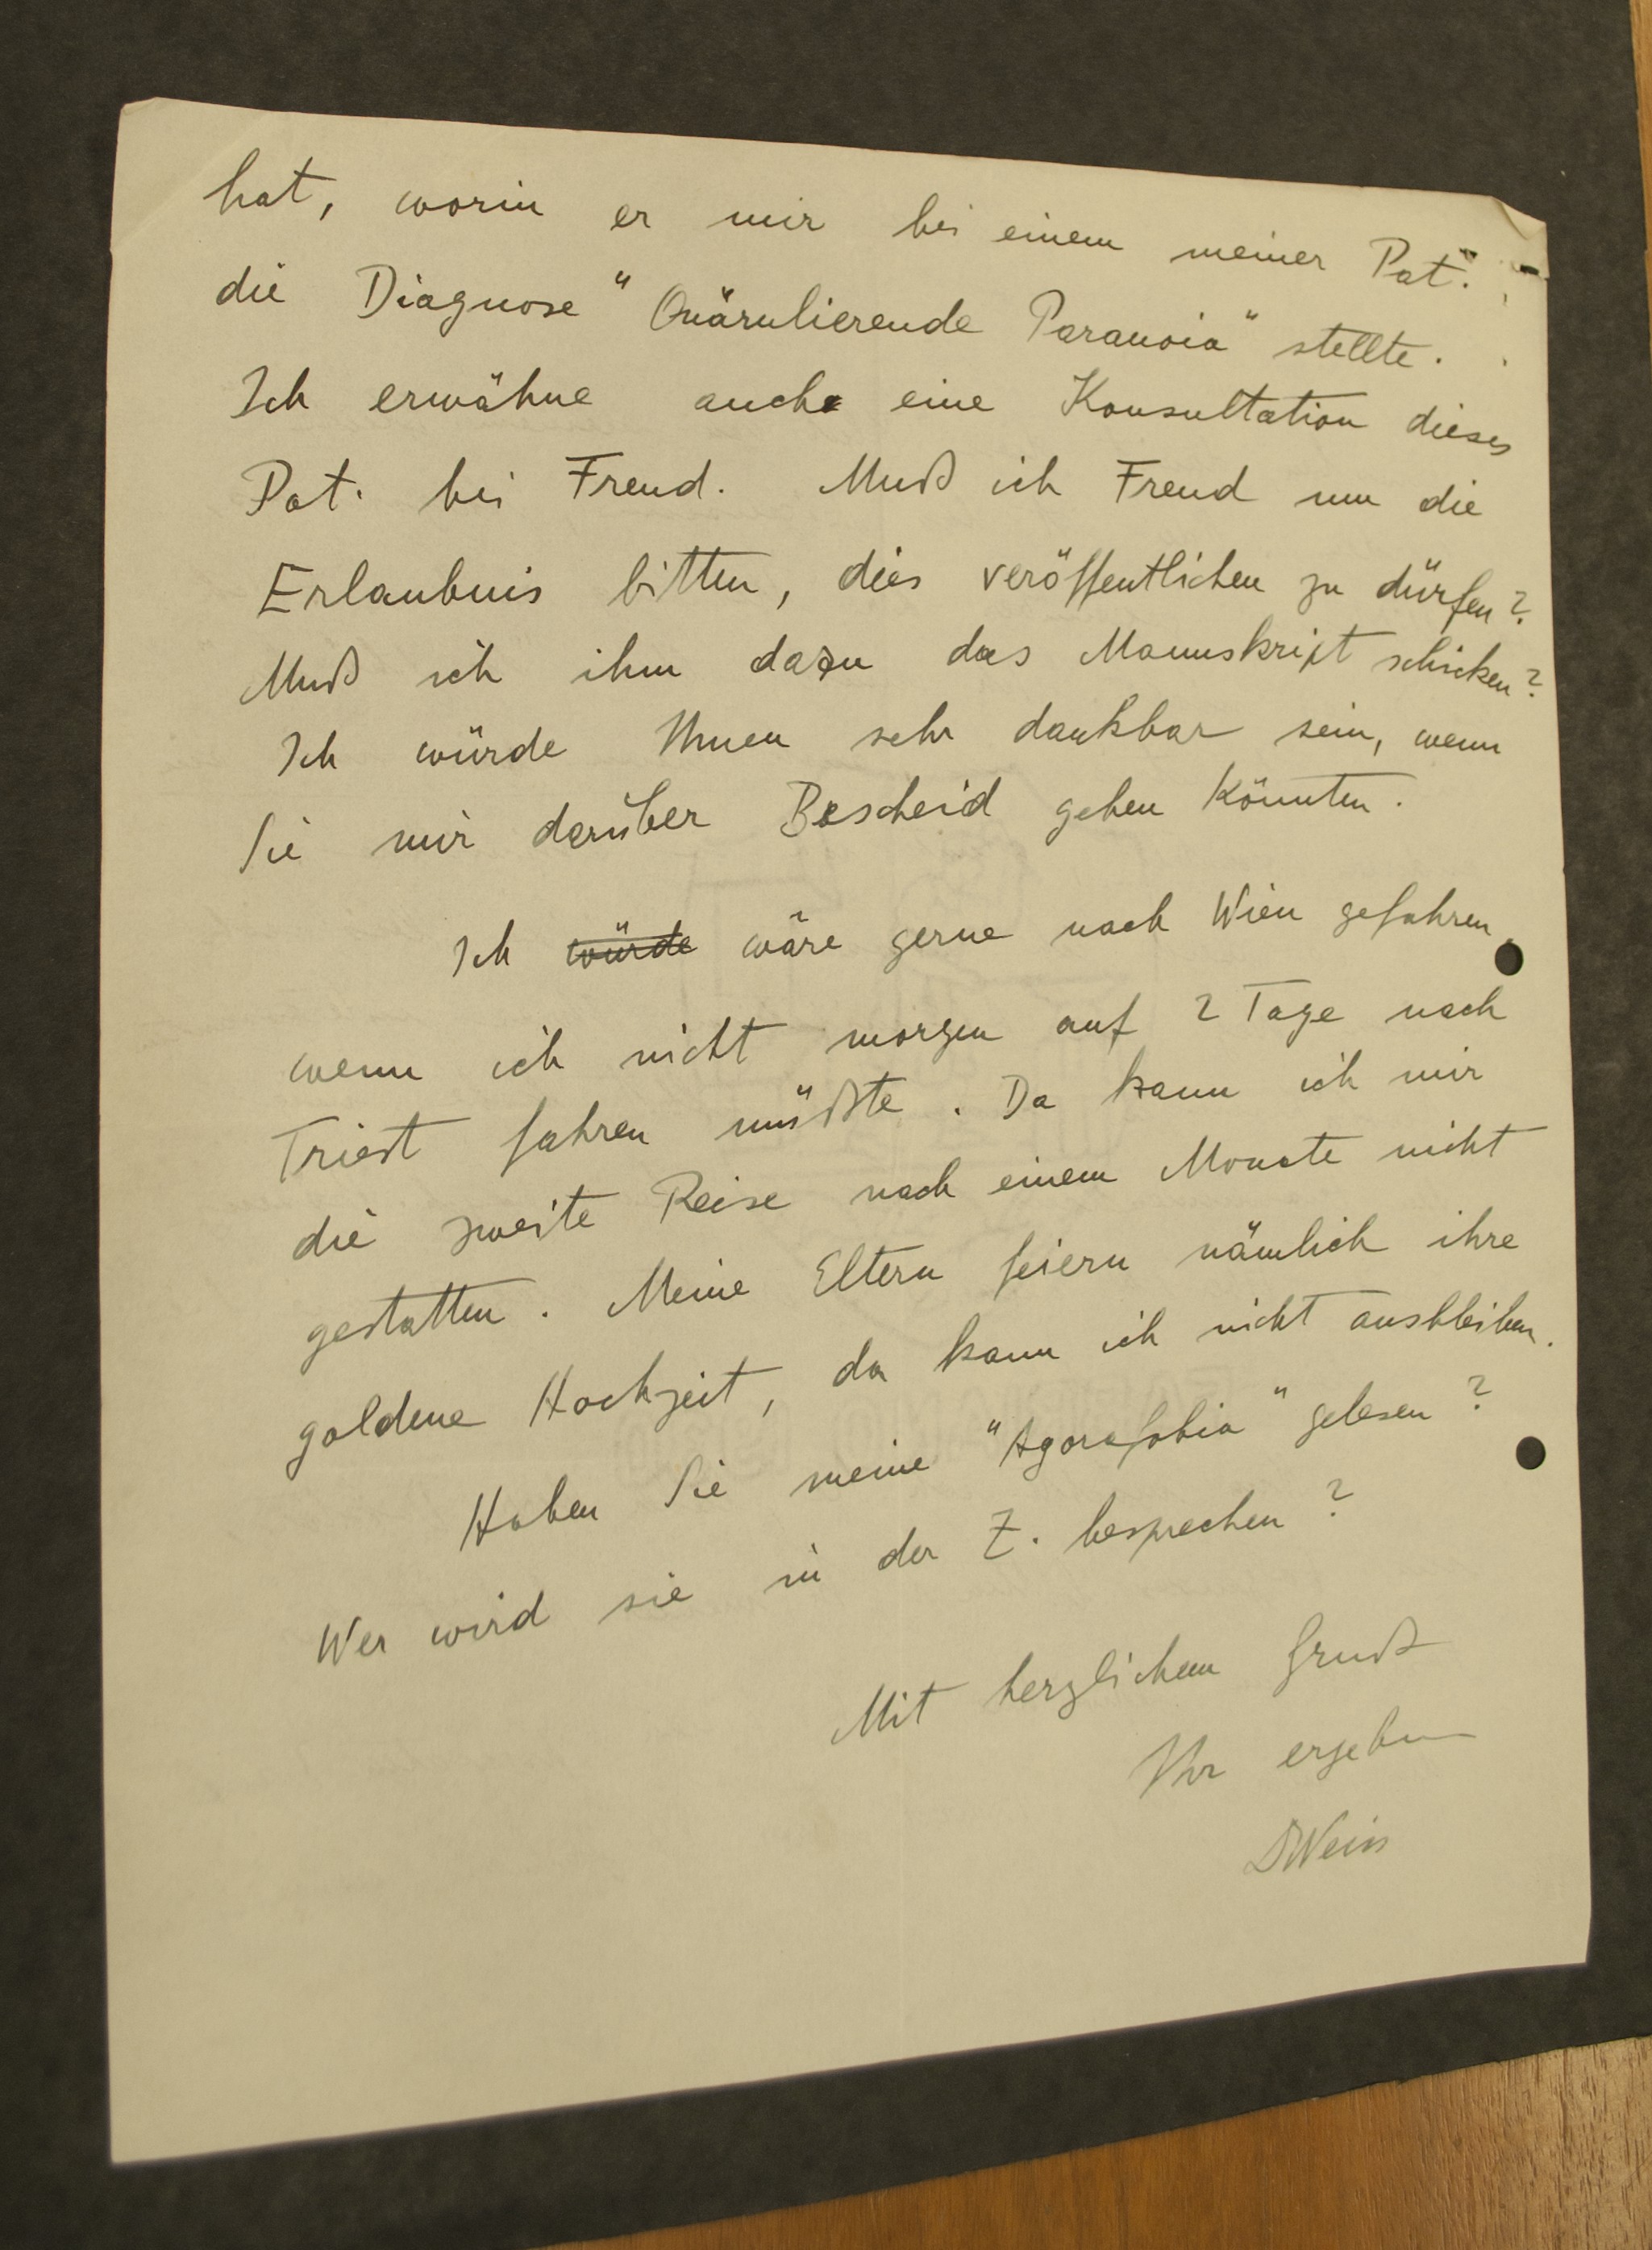 hat, worin er mir bei einem meiner Pat.
die Diagnose "Quärulierende Paranoia" stellte.
Ich erwähne auch eine Konsultation dieses
Pat. bei Freud. Muß ich Freud um die
Erlaubnis bitten, dies veröffentlichen zu dürfen?
Muß ich ihm dazu das Manuskript schicken?
Ich würde Ihnen sehr dankbar sein, wenn
Sie mir darüber Bescheid geben könnten.
Ich würde wäre gerne nach Wien gefahren,
wenn ich nicht morgen auf 2 Tage nach
Triest fahren müßte. Da kann ich mir
die zweite Reise nach einem Monate nicht
gestatten. Meine Eltern feiern nämlich ihre
goldene Hochzeit, da kann ich nicht ausbleiben.
Haben Sie meine "Agorafobia" gelesen?
Wer wird sie in der Z. besprechen?
Mit herzlichem Gruß
Ihr ergeben
DWeiss